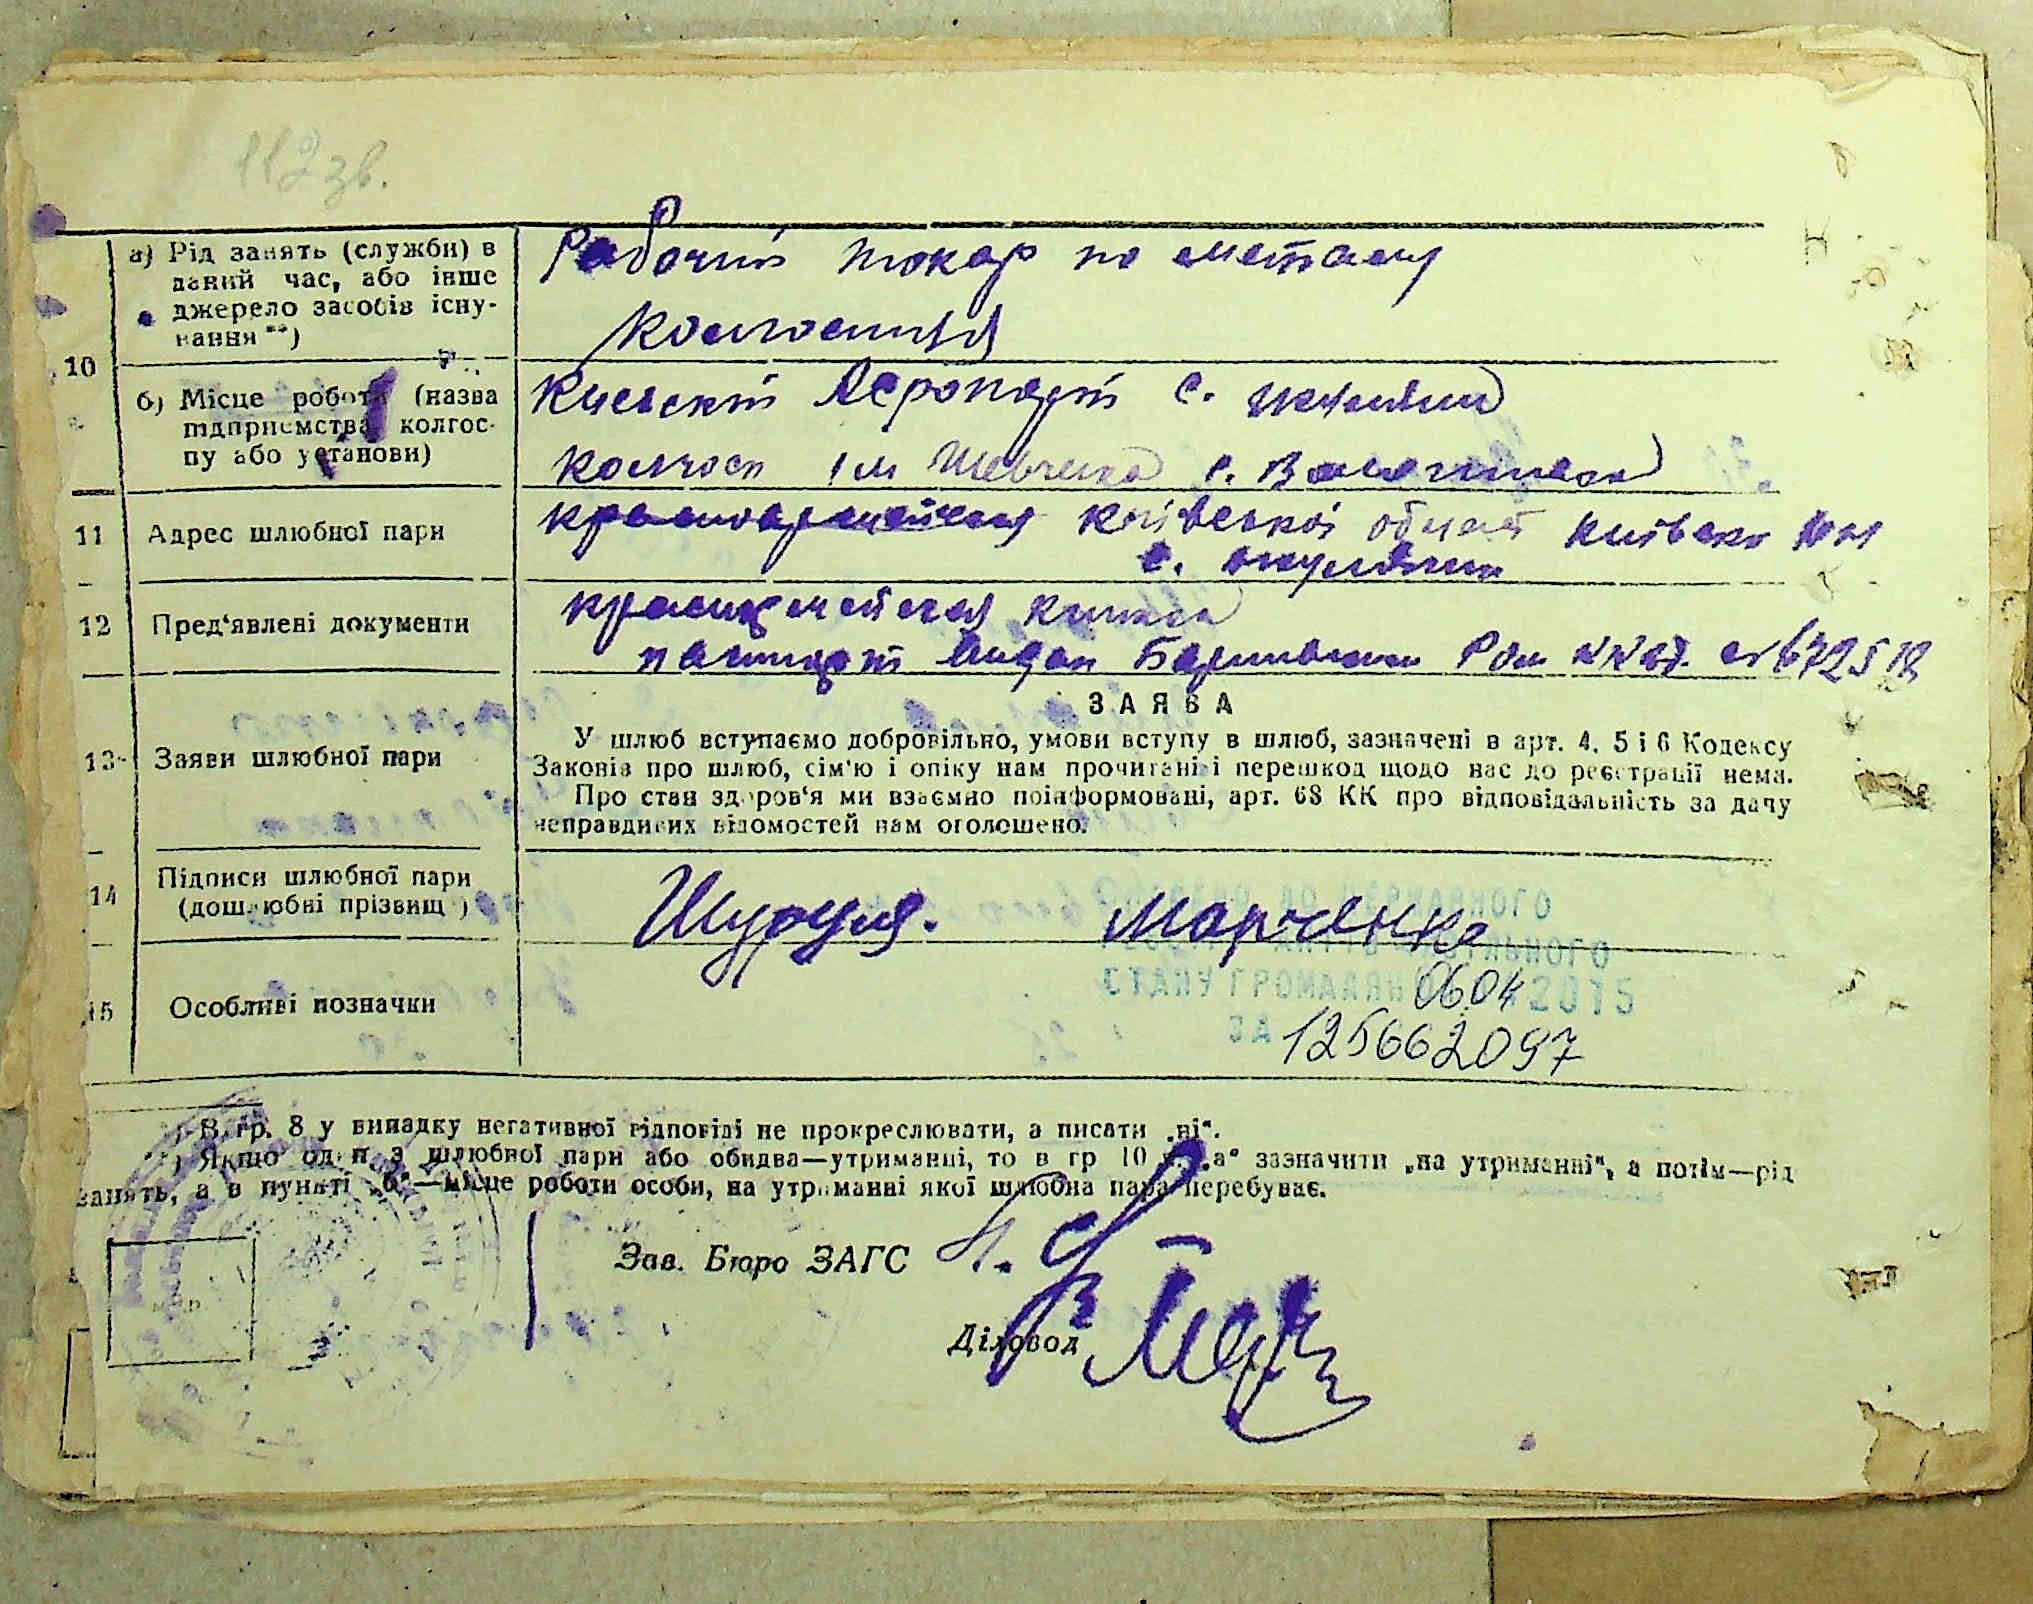 112 зв.
а) Рід занять (служби) в
даний час, або інше
джерело засобів існу-
вання **)
Рабочий токар по металу
колгоспця
10
б) Місце роботи (назва
підприємства, колгос-
пу або установи)
Киевский Аєропорт с.
колгосп ім Шевченка с.
11 Адрес шлюбної пари
Київської області Київсько
с.
12 Пред'явлені документи
красноармейская книжка
паспорт видан РВМ 672518
13 Заяви шлюбної пари
ЗАЯВА
У шлюб вступаємо добровільно, умови вступу в шлюб, зазначені в арт. 4, 5 і 6 Кодексу
Законів про шлюб, сім'ю і опіку нам прочитані і перешкод щодо нас до реєстрації нема.
Про стан здоров'я ми взаємно поінформовані, арт. 68 КК про відповідальність за дачу
неправдивих відомостей нам оголошено.
14 Підписи шлюбної пари
(дошлюбні прізвища)
Марченко
ДО ДЕРЖАВНОГО
СТАНУ ГРОМАДЯН 06.04 2015
ЗА 125662097
15 Особливі позначки
*) В гр. 8 у випадку негативної відповіді не прокреслювати, а писати „ні“.
**) Якщо один з шлюбної пари або обидва—утриманці, то в гр 10 п. „а“ зазначити „на утриманні“, а потім—рід
занять, а в пункті „б“—місце роботи особи, на утриманні якої шлюбна пара перебуває.
Зав. Бюро ЗАГС
Діловод